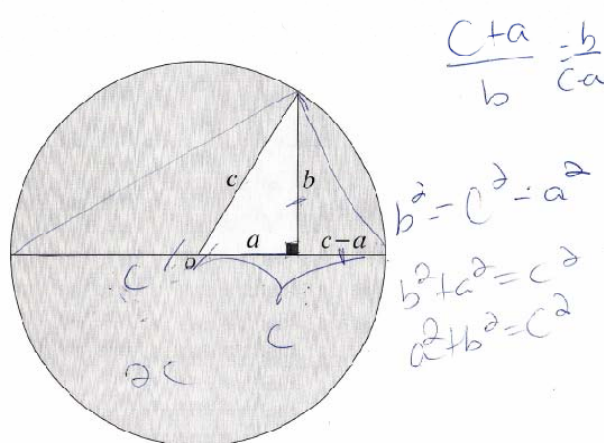 C+a/b = b/c-a
c b
a c-a
b² = c² - a²
C o
b² + a² = c²
C
a² + b² = c²
2C